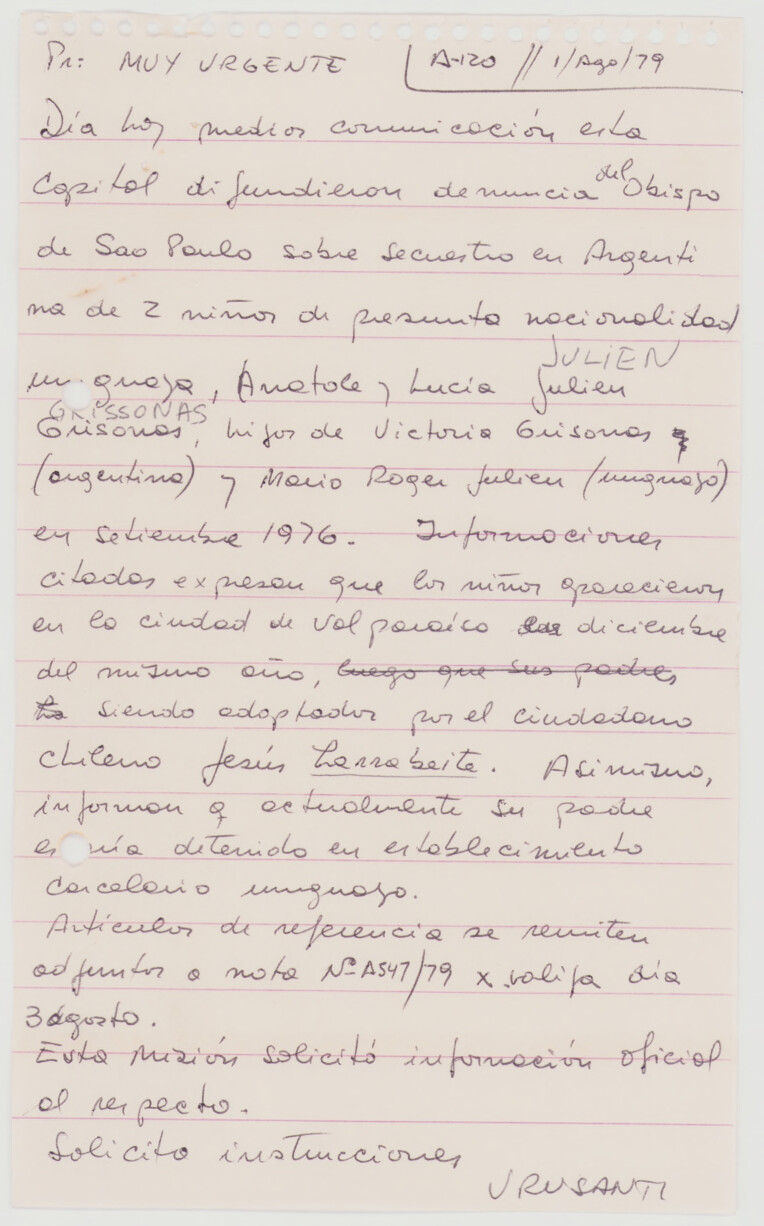 Pr: MUY URGENTE A-120 // 1/Ago/79
Día hoy medios comunicación esta
Capital difundieron denuncia del Obispo
de Sao Paulo sobre secuestro en Argenti
na de 2 niños de presunta nacionalidad
JULIEN
uruguaya, Anatole y Lucía Julien
GRISSONAS
Grisonas, hijos de Victoria Grisonas
(argentina) y Mario Roger Julien (uruguayo)
en setiembre 1976. Informaciones
citadas expresan que los niños aparecieron
en la ciudad de Valparaíso diciembre
del mismo año, luego que sus padres
siendo adoptados por el ciudadano
chileno Jesús Larrabeite. Asimismo,
informan q actualmente su padre
es ría detenido en establecimiento
carcelario uruguayo.
Artículos de referencia se remiten
adjuntos a nota Nº A547/79 x valija día
3 agosto.
Esta Misión solicitó información oficial
al respecto.
Solicito instrucciones
URUSANTI